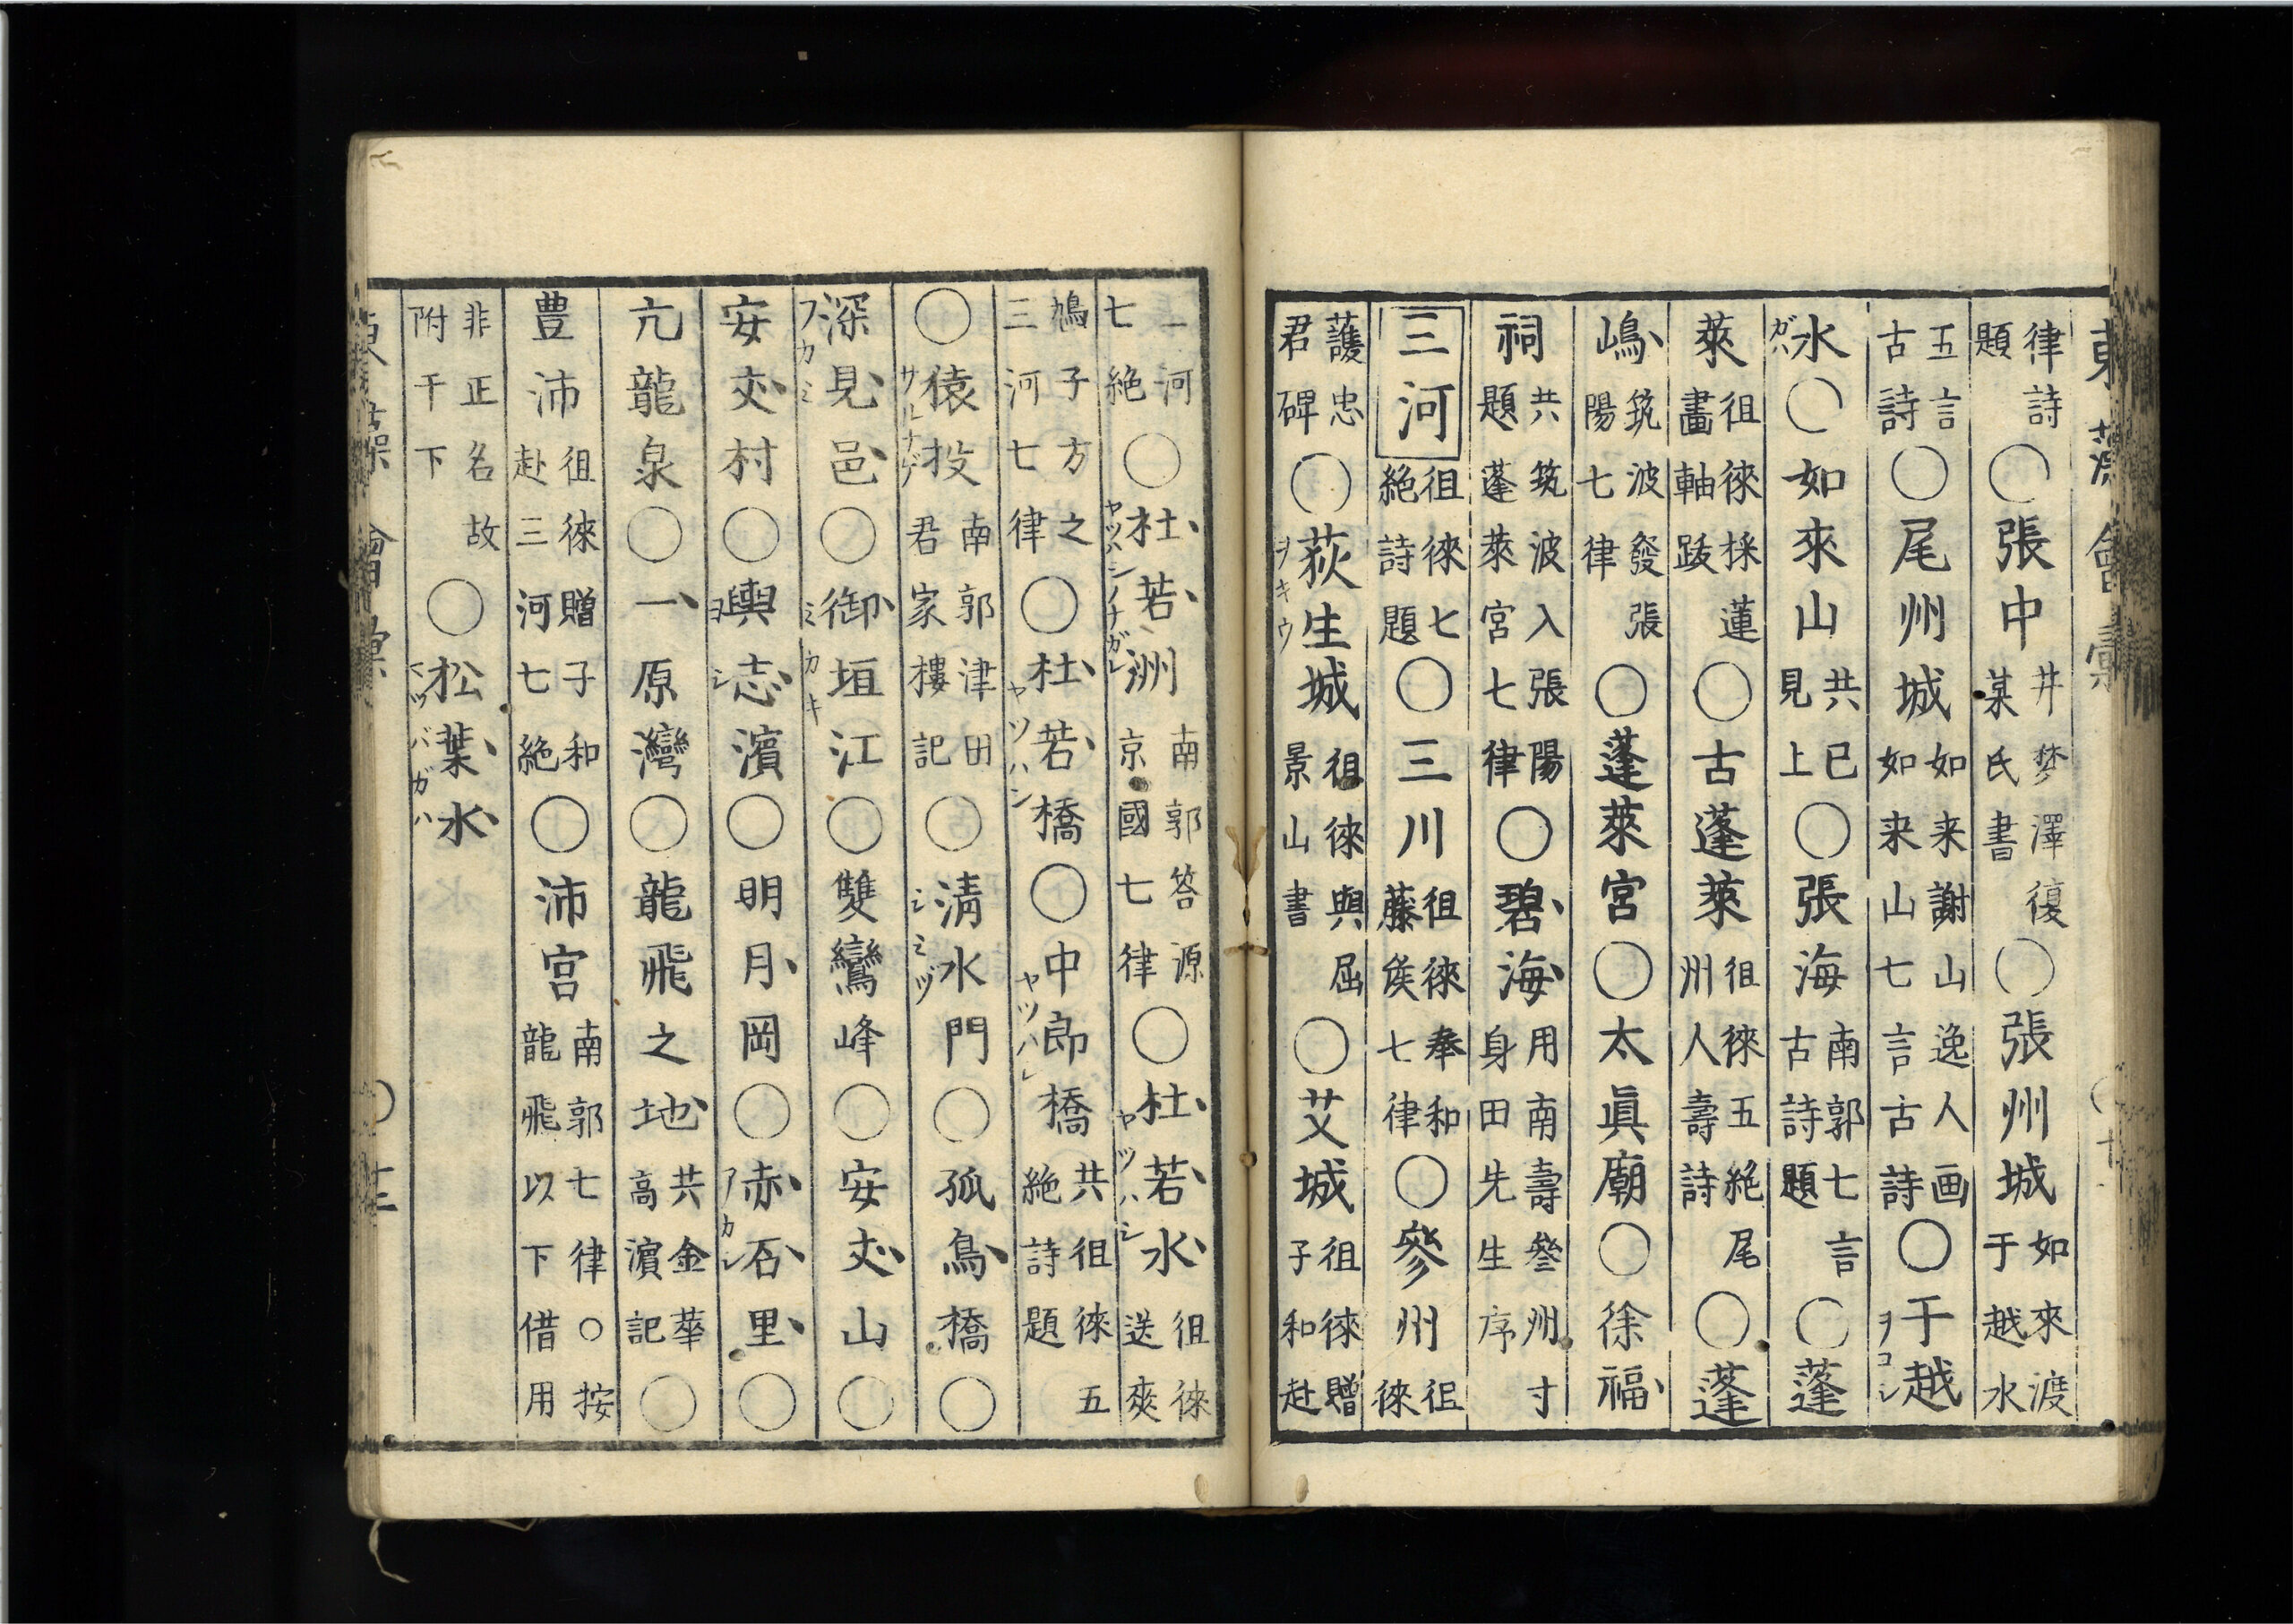 律詩題○張中井夢澤復某氏書○張州城如來渡于越水
五言古詩○尾州城如来謝山逸人画如来山七言古詩○于越ヲコシ
水ガハ○如來山共已見上○張海南郭七言古詩題○蓬
萊徂徠採蓮畫軸跋○古蓬萊徂徠五絶尾州人壽詩○蓬
嶋筑波發張陽七律○蓬萊宮○太眞廟○徐福
祠共筑波入張陽題蓬萊宮七律○碧海用南壽參州寸身田先生序
三河徂徠七絶詩題○三川徂徠奉和藤侯七律○參州徂徠
護忠君碑○荻生城ヲキウ徂徠與屈景山書○艾城徂徠贈子和赴
一河七絶○杜若洲ヤツハシノナガレ南郭答源京國七律○杜若水ヤツハシ徂徠送爽
鳩子方之三河七律○杜若橋ヤツハシ○中郎橋ヤツハシ共徂徠五絶詩題
○猿投サルナゲ南郭津田君家樓記○清水門シミヅ○孤鳥橋○
深見邑フカミ○御垣江ミカキ○雙鸞峰○安夾山○
安夾村○輿志濱ヨシ○明月岡○赤石里アカシ○
亢龍泉○一原灣○龍飛之地共金華高濱記○
豊沛徂徠贈子和赴三河七絶○沛宮南郭七律○按龍飛以下借用
非正名故附于下○松葉水マツバガハ